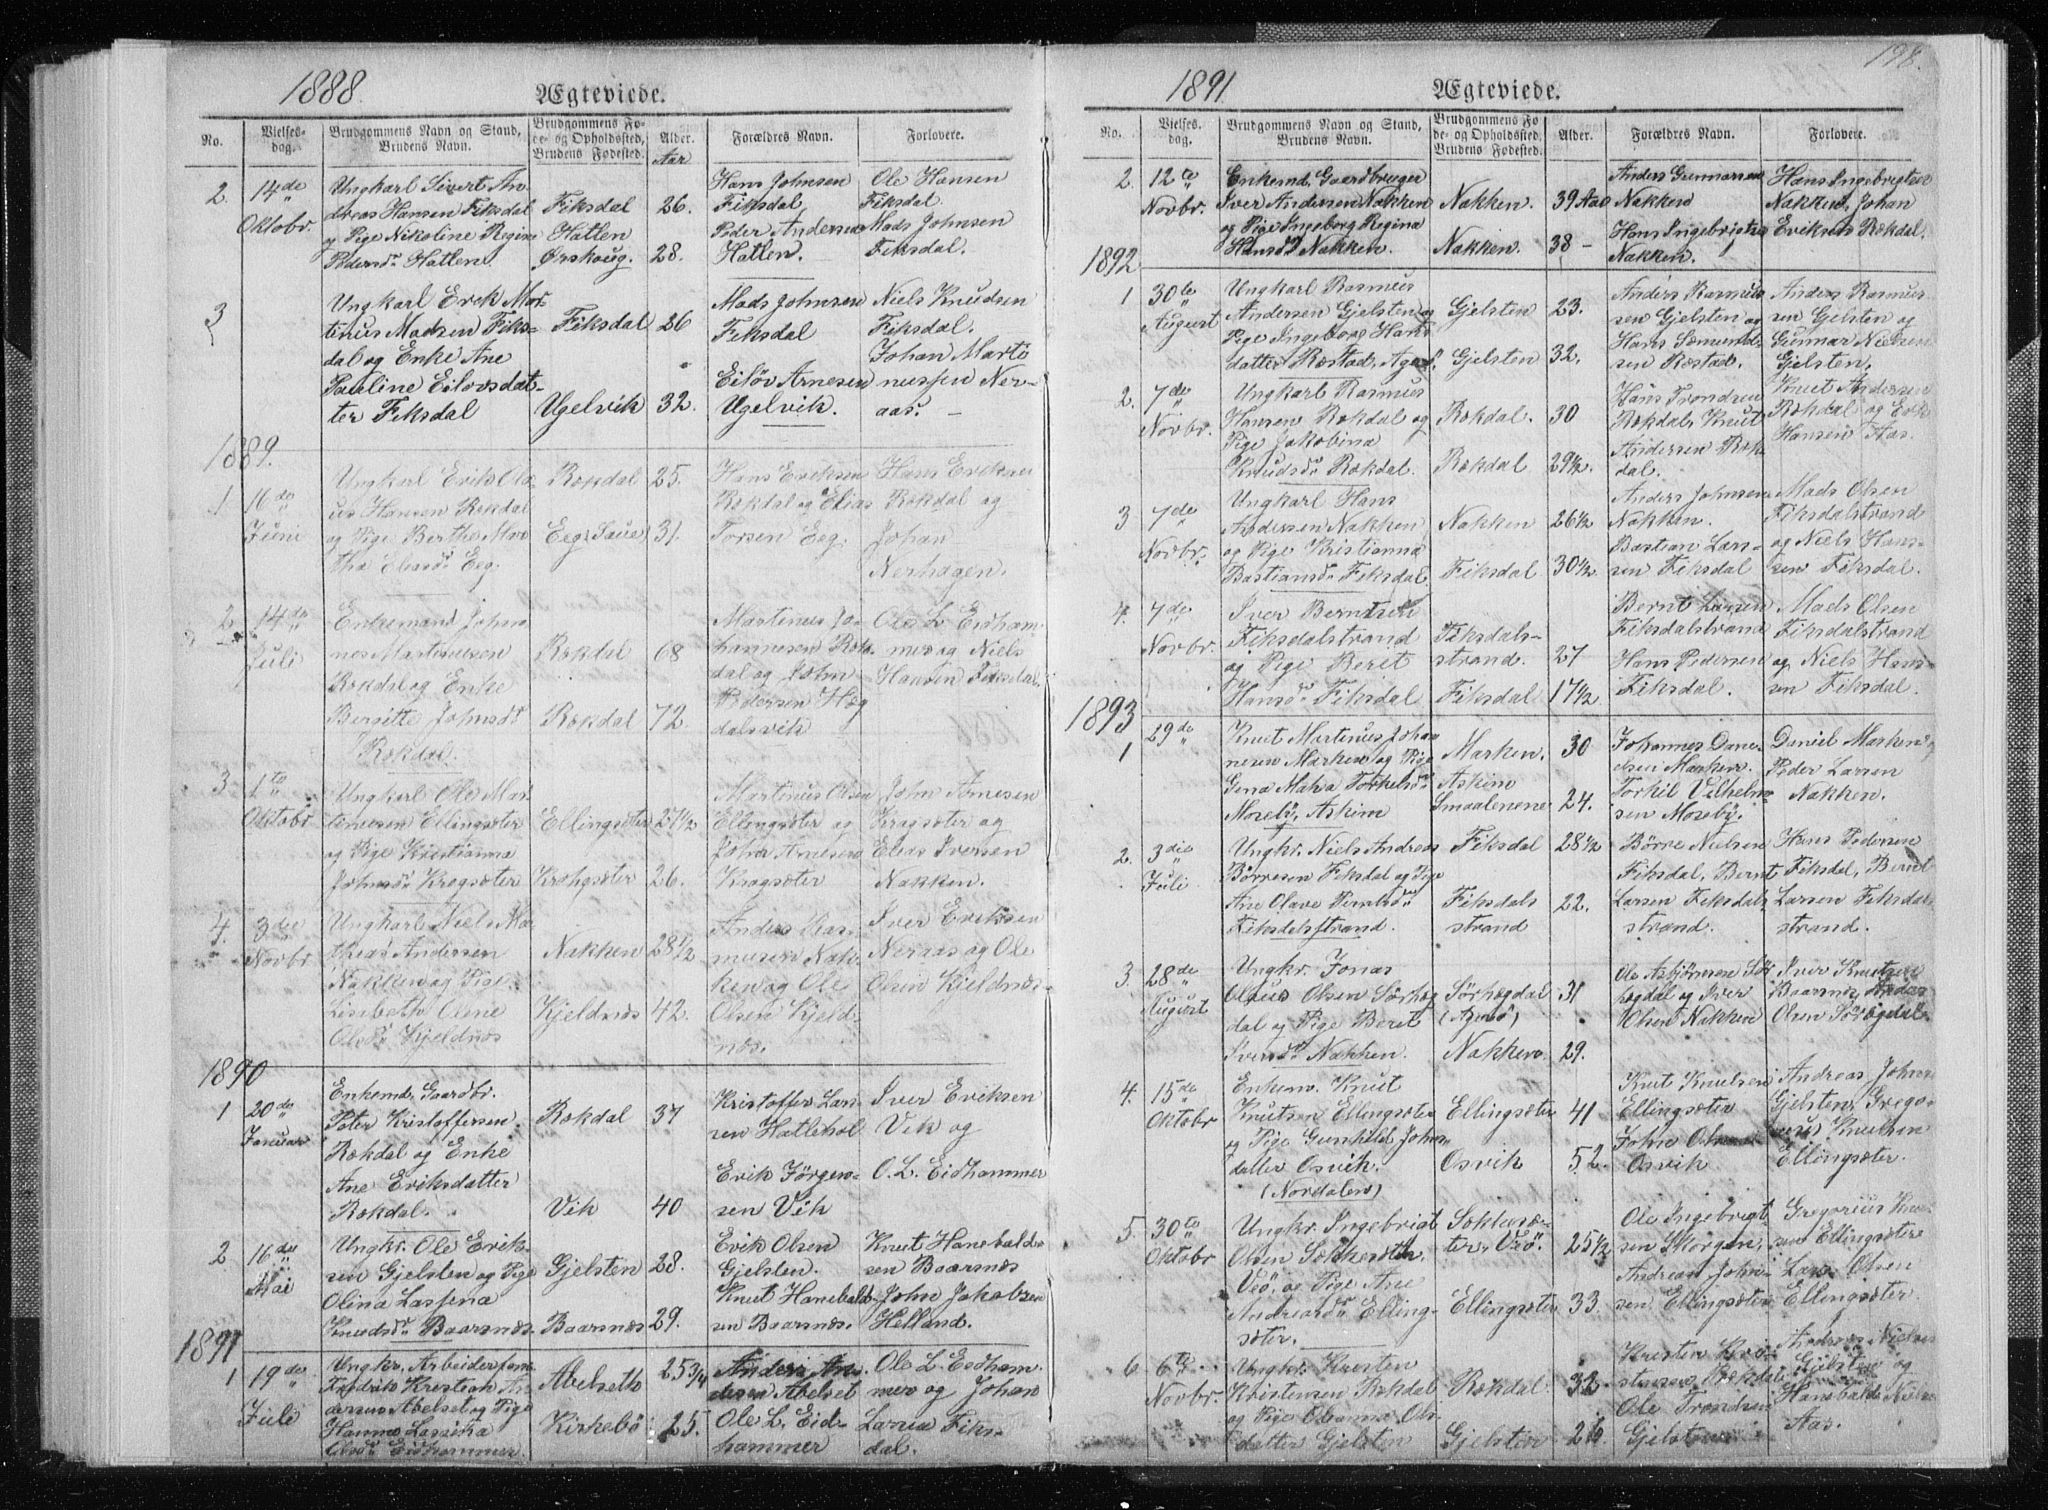 1888
Ægteviede.
No.
Vielses-
dag.
Brudgommens Navn og Stand,
Brudens Navn.
Brudgommens Fø-
de- og Opholdssted,
Brudens Fødested.
Alder.
Aar
Forældres Navn.
Forlovere.
2. 14de Oktobr.
Ungkarl Sivert An-
dreas Hansen Fiksdal
og Pige Nikoline Regine
Pedersdr Hatlen.
Fiksdal
Hatlen
Ørskoug.
26.
28.
Hans Johnsen
Fiksdal,
Peder Andersen
Hatlen.
Ole Hansen
Fiksdal.
Mads Johnsen
Fiksdal.
3
Ungkarl Erik Mar-
tinus Madsen Fiks-
dal og Enke Ane
Pauline Eilovsdat-
ter Fiksdal
Fiksdal
Ugelvik
26
32.
Mads Johnsen
Fiksdal
Eiløv Arnesen
Ugelvik.
Niels Knudsen
Fiksdal.
Johan Marti
nussen Ner-
aas. -
1889.
1 16de Juni
Ungkarl Erik Ola-
us Hansen Rekdal
og Pige Berthe Mar-
tha Eliasdr Eeg.
Rekdal
Eeg,
25.
31.
Hans Eriksen
Rekdal og Elias
Torsen Eeg.
Hans Eriksen
Rekdal og
Johan
Nerhagen.
2. 14de Juli
Enkemand Johan
nes Martinussen
Rekdal og Enke
Bergitte Johnsdr
Rekdal
Rekdal
Rekdal
68
72.
Martinus Jo-
hannesen Rek-
dal og John
Pedersen Hæg
dalsvik
Ole L. Eidham-
mer og Niels
Hansen Fiksdal.
3 1te Oktobr
Ungkarl Ole Mar
tinusen Ellingsæter
og Pige Kristianna
Johnsdr Kragsæter
Ellingsæter
Krohgsæter
27½
26.
Martinus Olsen
Ellingsæter og
John Arnesen
Kragsæter
John Arnesen
Kragsæter og
Elias Iversen
Nakken.
4. 3de Novbr
Ungkarl Niels Ma-
theas Andersen
Nakken og Pige
Lisebeth Oline
Olsdr Kjeldnæs
Nakken
Kjeldnæs
28½
42.
Anders Ras-
musen Nak-
ken og Ole
Olsen Kjeld
næs.
Iver Eriksen
Neraas og Ole
Olsen Kjeldnæs.
1890
1 20de Januar
Enkemd. Gaardbr.
Peter Kristoffersen.
Rekdal og Enke
Ane Eriksdatter
Rekdal.
Rekdal
Vik
37
40
Kristoffer Lar-
sen Hatlehol
Erik Jørgen-
sen Vik
Iver Eriksen
Vik og
O. L. Eidhammer
2 16de Mai
Ungkr. Ole Erik-
sen Gjelsten og Pige
Olina Lassena
Knudsdr Baarsnæs
Gjelsten
Baarsnæs
28.
29.
Erik Olsen
Gjelsten.
Knut Hanebald-
sen Baarsnæs.
Knut Hanebald-
sen Baarsnæs
John Jakobsen
Helland.
1891
1 19de Juli
Ungkr. Arbeider
Fredrik Kristian An-
dersen Abelset og Pige
Hanna Lassina
Olsdr Eidhammer.
Abelseth
Kirkebø
25 3/4
25.
Anders An-
dersen Abelset
Ole L. Eid-
hammer
Ole L. Eidham
mer og Johan
Larsen Fiks-
dal.
198.
1891
Ægteviede.
No.
Vielses-
dag.
Brudgommens Navn og Stand,
Brudens Navn.
Brudgommens Fø
de- og Opholdssted,
Brudens Fødested.
Alder.
Forældres Navn.
Forlovere.
2. 12te Novbr.
Enkemd. Gaardbruger
Iver Andersen Nakken
og Pige Ingeborg Regina
Hansdr Nakken.
Nakken.
Nakken.
39 Aar
38 -
Anders Gunnarsen
Nakken
Hans Ingebrigtsen
Nakken.
Hans Ingebrigtsen
Nakken, Johan
Eriksen Rekdal.
1892
1 30te August
Ungkarl Rasmus
Andersen Gjelsten og
Pige Ingeborg Hans
datter Ræstad,
Gjelsten
Gjelsten
23.
32.
Anders Rasmus
sen Gjelsten og
Hans Semund-
sen Ræstad.
Anders Rasmus
sen Gjelsten og
Gunnar Nielsen
Gjelsten.
2. 7de Novbr.
Ungkarl Rasmus
Hansen Rekdal og
Pige Jakobina
Knudsdr Rekdal.
Rekdal.
Rekdal
30
29½
Hans Trondsen
Rekdal, Knut
Andersen Rek
dal.
Knut Andersen
Rekdal og Erik
Hansen Aas.
3 7de Novbr.
Ungkarl Hans
Andersen Nakken
og Pige Kristianna
Bastiansdr Fiksdal
Nakken
Fiksdal
26½
30½
Anders Johnsen
Nakken.
Bastian Lars-
sen Fiksdal
Mads Olsen
Fiksdalstrand
og Niels Hans-
sen Fiksdal.
4. 7de Novbr.
Iver Berntsen
Fiksdalstrand
og Pige Beret
Hansdr Fiksdal
Fiksdals-
strand.
Fiksdal
27
17½
Bernt Larsen
Fiksdalstrand
Hans Pedersen
Fiksdal.
Mads Olsen
Fiksdalstrand
og Niels Hans-
sen Fiksdal.
1893
1 29de
Knut Martinus Johan
nesen Marken og Pige
Gina Torkelsdr
Moseby, Askim
Marken.
Askim
Smaalenene
30
24.
Johannes Dani-
elsen Marken.
Torkil Vilhelm-
sen Moseby.
Daniel Marken,
Peder Larsen
Nakken.
2. 3die Juli
Ungkr. Niels Andreas
Børresen Fiksdal og Pige
Ane Olave Berntsdr
Fiksdalsstrand.
Fiksdal
Fiksdals
strand
28½
22.
Børre Nielsen
Fiksdal, Bernt
Larsen Fiksdals
strand.
Hans Pedersen
Fiksdal, Bernt
Larsen Fiksdal-
strand.
3. 28de August
Ungkr. Jonas
Olaus Olsen Sørhæg
dal og Pige Beret
Iversdr Nakken.
Sørhægdal
Nakken
31
29.
Ole Asbjørnsen Sør
hægdal og Iver
Olsen Nakken
Iver Knutsen
Baarsnæs, Anders
Olsen
4. 15de Oktobr
Enkem. Knut
Knutsen Ellingsæter
og Pige Gunhild Johns
datter Osvik.
(Nordalen)
Ellingsæter
Osvik
41
52.
Knut Knutsen
Ellingsæter
John
Osvik
Andreas Johns
Gjelsten, Grego-
rius Knutsen
Ellingsæter.
5. 30te Oktobr
Ungkr. Ingebrigt
Olsen
Veø. og Pige Ane
Andreasdr Elling-
sæter.
ter, Veø.
Ellingsæter
25½
33.
Ole Ingebrigt-
sen Skorgen,
Andreas John-
sen Ellingsæter
Gregorius Knu-
sen Ellingsæter
Lars Olsen
Ellingsæter.
6. 6te Novbr.
Ungkr. Kristen
Kristensen Rekdal
og Pige Oleanna Ols-
datter Gjelsten
Rekdal
Gjelsten
32
26.
Kristen Kri-
stensen Rekdal
Ole Trondsen
Gjelsten
Andreas Nielsen
Gjelsten og
Hanebald Niels
Aas.